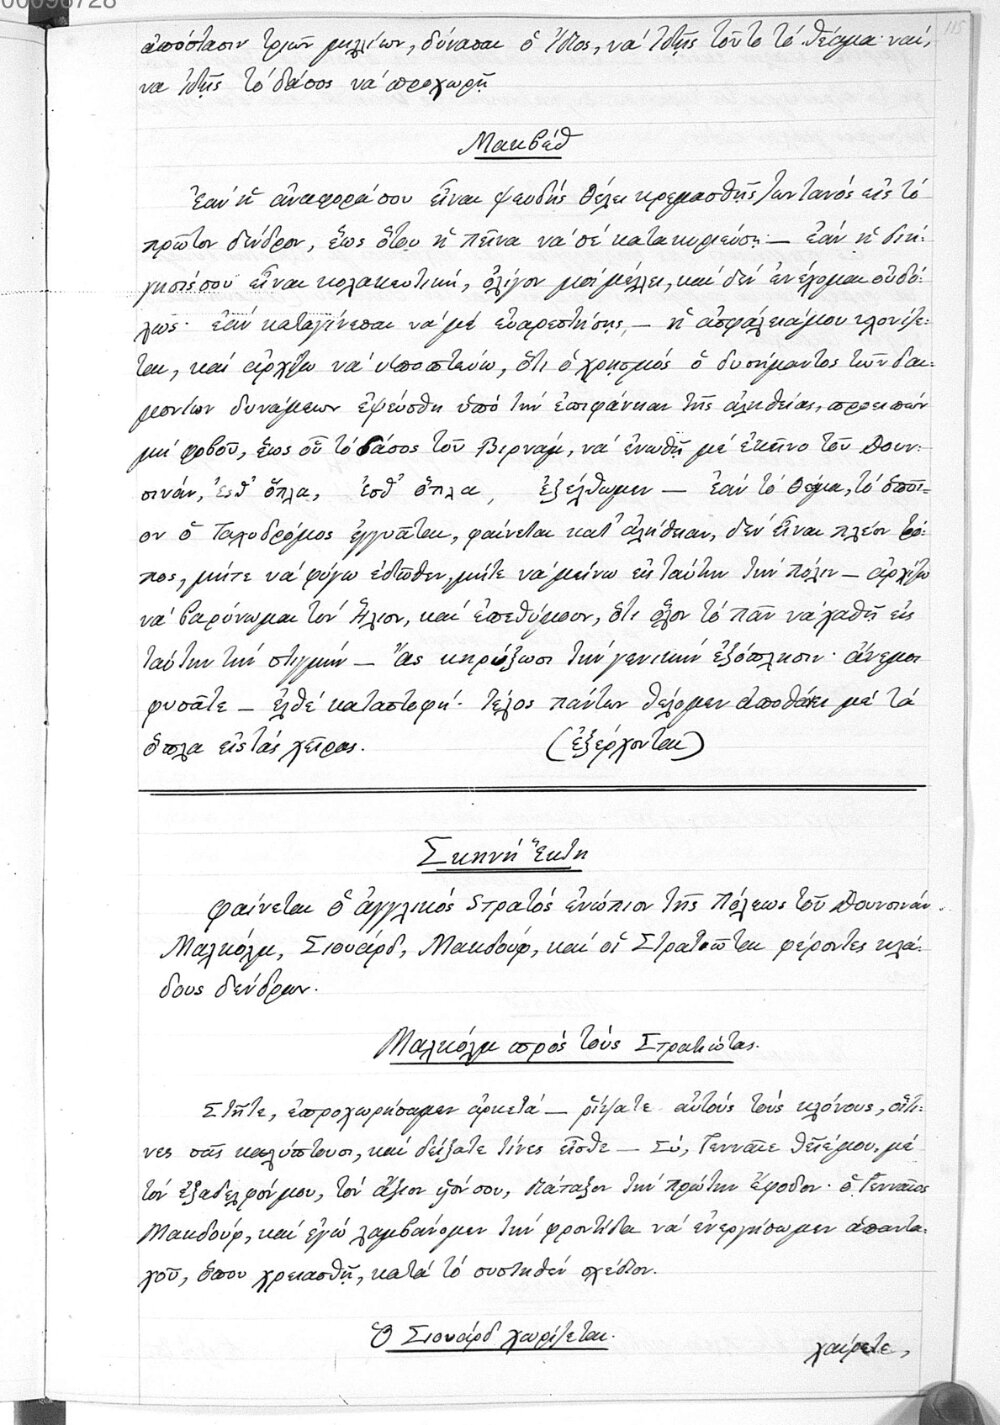 00096728
115
ἀπόστασιν τριῶν μιλίων, δύνασαι ὁ ἴδιος, νὰ ἰδῇς τοῦτο τὸ θέαμα· ναί,
να ἰδῇς τὸ δάσος νὰ προχωρῇ
Μακβέθ
Ἐὰν ἡ ἀναφορά σου εἶναι ψευδής θέλει κρεμασθῇς ζωντανός εἰς τὸ
πρῶτον δένδρον, ἕως ὅτου ἡ πεῖνα νὰ σὲ κατακυριεύσῃ — ἐὰν ἡ διή-
γησίς σου εἶναι κολακευτική, ὀλίγον μοὶ μέλλει, καὶ δὲν ἐνέχομαι οὐδό-
λως· ἐὰν καταγίνεσαι νὰ μὲ εὐαρεστήσῃς, — ἡ ἀσφάλειά μου κλονίζε-
ται, καὶ ἀρχίζω νὰ ὑποπτεύω, ὅτι ὁ χρησμός ὁ δυσήμαντος τῶν δαι-
μονίων δυνάμεων ἐψεύσθη ὑπό τὴν ἐπιφάνειαν τῆς ἀληθείας, προειπών
μὴ φοβοῦ, ἕως οὗ τὸ δάσος τοῦ Βιρνάμ, νὰ ἑνωθῇ μὲ ἐκεῖνο τοῦ Δουν-
σινάν, ἐσθ' ὅπλα, ἐσθ' ὅπλα, ἐξέλθωμεν — ἐὰν τὸ θέμα, τὸ ὁποῖ-
ον ὁ Ταχυδρόμος ἐγγυᾶται, φαίνεται κατ' ἀλήθειαν, δὲν εἶναι πλέον τό-
πος, μήτε νὰ φύγω ἐδῶθεν, μήτε νὰ μείνω εἰς ταύτην τὴν πόλιν — ἀρχίζω
νὰ βαρύνωμαι τὸν Ἥλιον, καὶ ἐπεθύμουν, ὅτι ὅλον τὸ πᾶν νὰ χαθῇ εἰς
ταύτην τὴν στιγμήν — Ἂς κηρύξωσι τὴν γενικήν ἐξόπλησιν· ἄνεμοι
φυσᾶτε — ἐλθὲ καταστροφή· τέλος πάντων θέλομεν ἀποθάνει μὲ τὰ
ὅπλα εἰς τὰς χεῖρας. (ἐξέρχονται)
Σκηνὴ Ἕκτη
Φαίνεται ὁ ἀγγλικὸς Στρατός ἐνώπιον τῆς Πόλεως τοῦ Δουνσινάν.
Μαλκόλμ, Σιουάρδ, Μακδούφ, καὶ οἱ Στρατιῶται φέροντες κλά-
δους δένδρων.
Μαλκόλμ πρὸς τοὺς Στρατιώτας.
Στῆτε, ἐπροχωρήσαμεν ἀρκετά — ῥίψατε αὐτοὺς τοὺς κλόνους, οἵτι-
νες σᾶς καλύπτουσι, καὶ δείξατε τίνες εἶσθε — Σύ, Γενναῖε θεῖέ μου, μὲ
τὸν ἐξάδελφόν μου, τὸν ἄξιον υἱόν σου, πάταξον τὴν πρώτην ἔφοδον· ὁ Γενναῖος
Μακδούφ, καὶ ἐγὼ λαμβάνομεν τὴν φροντίδα νὰ ἐνεργήσωμεν ἁπαντα-
χοῦ, ὅπου χρειασθῇ, κατὰ τὸ συστηθέν σχέδιον.
Ὁ Σιουάρδ χωρίζεται.
χαίρετε,